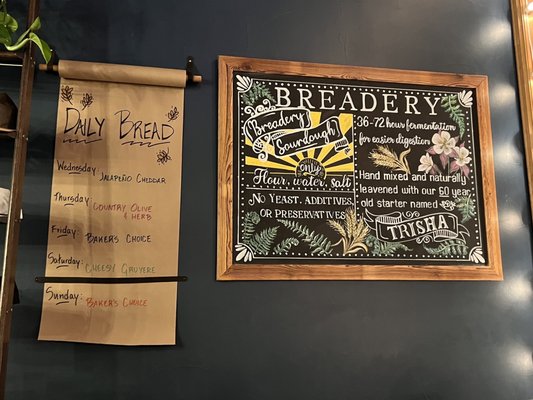 Daily Bread
Wednesday
Jalapeño Cheddar
Thursday:
Country Olive
& Herb
Friday:
Baker's Choice
Saturday:
Cheesy Gruyere
Sunday:
Baker's Choice
BREADERY
Breadery
Sourdough
only
Flour, water, salt
No Yeast, Additives,
or Preservatives
36-72 hour fermentation
for easier digestion
Hand mixed and naturally
leavened with our 60 year
old starter named
TRISHA